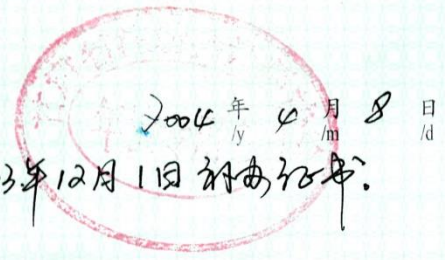 2004年4月8日
/y /m /d
3年12月1日补办证书.